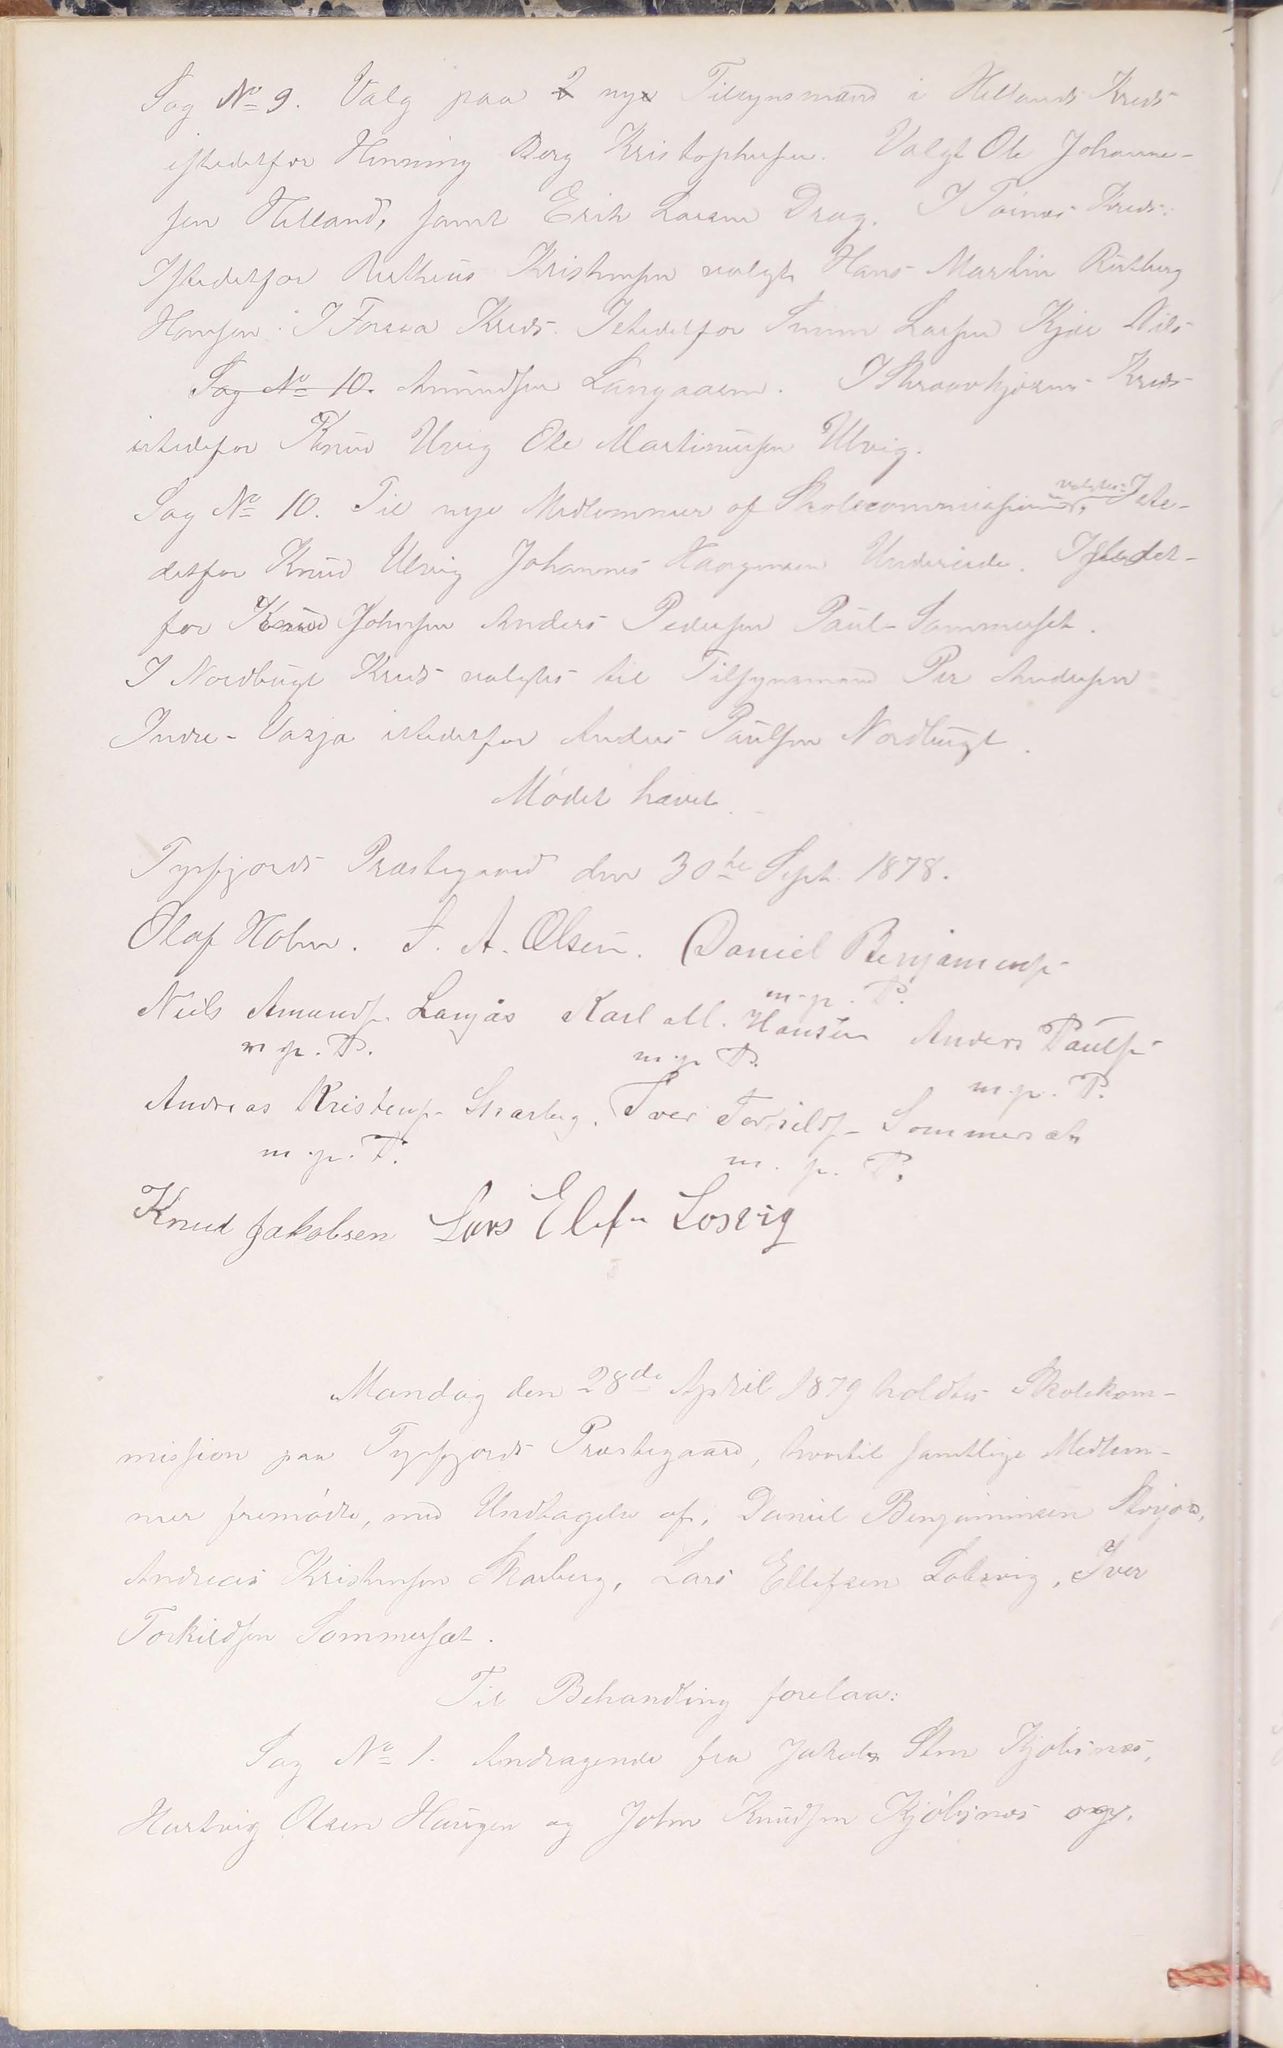 Sag No 9. Valg paa 2 nye Tilsynsmænd i Hellands Kreds
istedetfor Henning Berg Kristophersen. Valgt Ole Johanne-
sen Helland, samt Erik Larsen Drag. I Tornæs Kreds:
Istedetfor Kristensen valgt Hans Martin
Hansen. I Forsaa Kreds. Istedetfor Larsen Kjær Nils
Sag No 10. Amundsen Langaasen. I Kreds
istedefor Knud Ulvig Ole Martinussen Ulvig.
Sag No 10. Til nye Medlemmer af Skolecommissionen valgtes: Iste-
detfor Knud Ulvig Johannes Haagensen . Istedet-
for Johnsen Anders Pedersen Paul- Sommerset.
I Nordbugt Kreds valgtes til Tilsynsmand Per Andersen
Indre- istedetfor Anders Paulsen Nordbugt.
Mødet hævet.
Tysfjords Præstegaard den 30te Sept. 1878.
Olaf Holm. J. A. Olsen. Daniel Benjamins-
m. p. P.
Niels Amunds. Langås Karl M. Hansen Anders Pauls-
m p. P. m. p P. m. p. P.
Andreas Kristens- Skarberg. Iver Torkilds- Sommersæt
m. p. P. m. p. P.
Knud Jakobsen Lars Elefsen Losvig
Mandag den 28de April 1879 holdtes Skolekom-
mission paa Tysfjords Præstegaard, hvortil samtlige Medlem-
mer fremødte, med Undtagelse af, Daniel Benjaminsen
Andreas Kristensen Skarberg, Lars Ellefsen Lobsvig, Iver
Torkildsen Sommersæt.
Til Behandling forelaa:
Sag No 1. Andragende fra Jakob Kjøbsnæs,
Hartvig Olsen Haugen og John Knudsen Kjøbsnæs